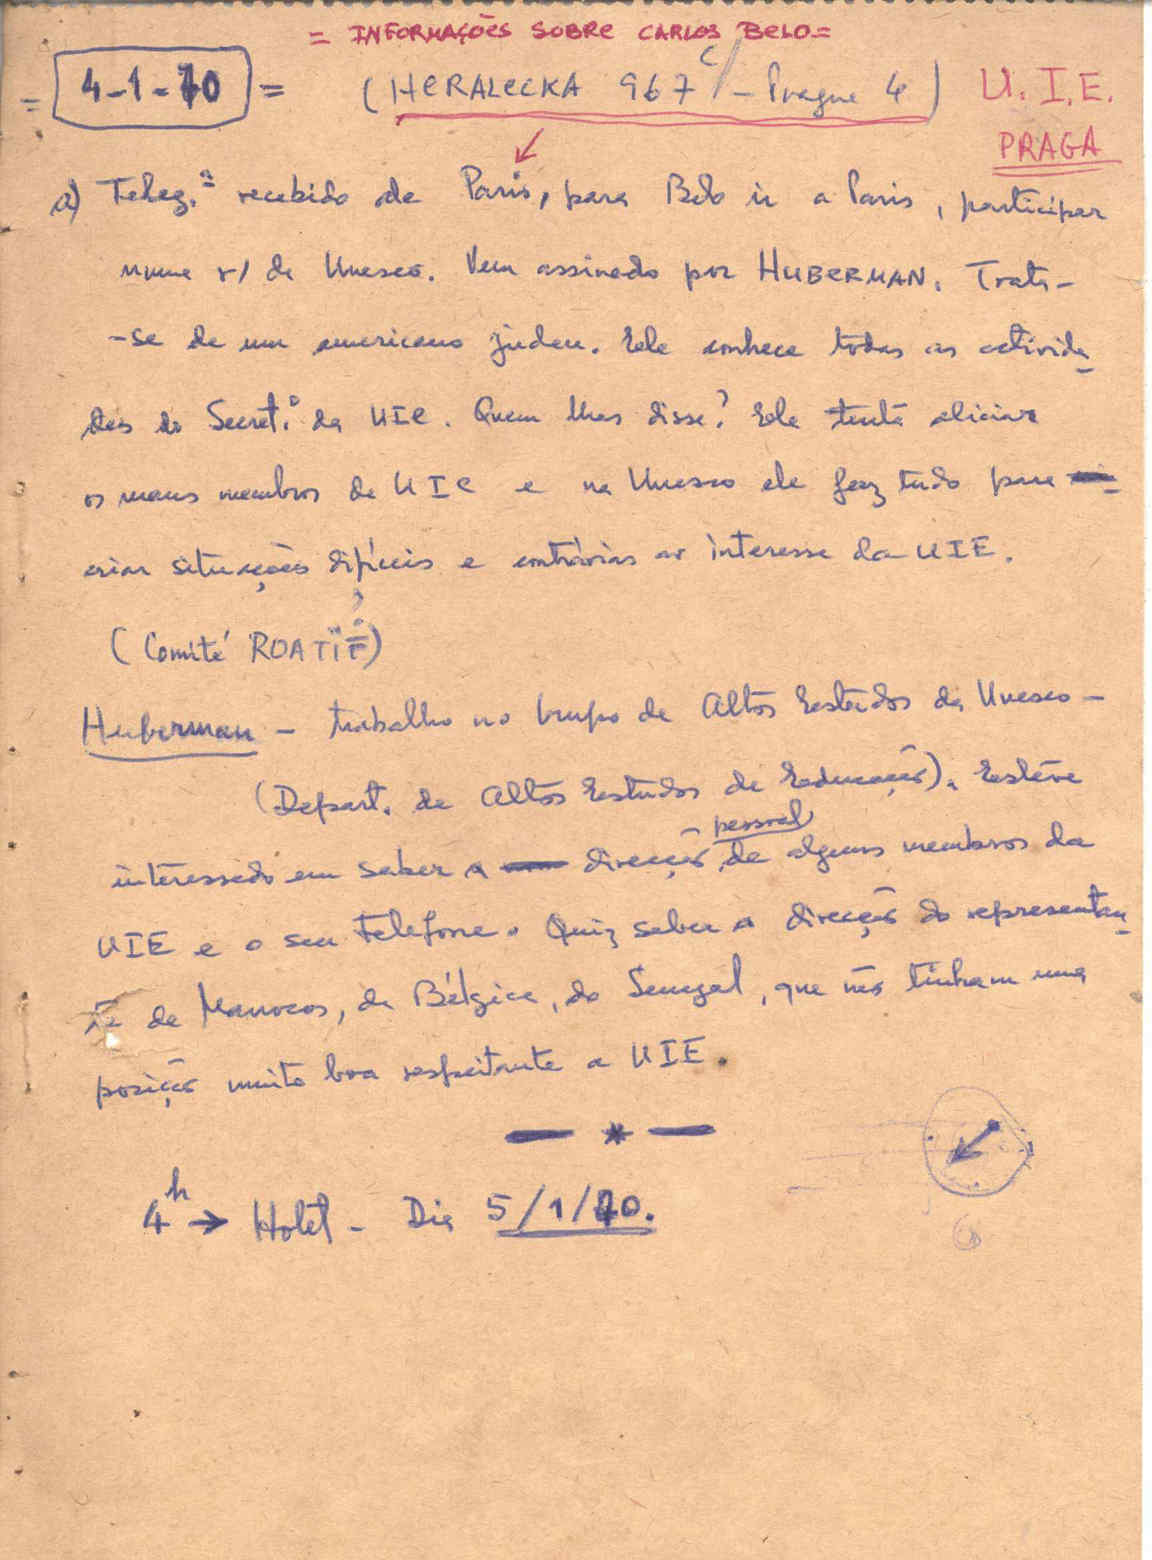 = INFORMAÇÕES SOBRE CARLOS BELO =
= 4-1-70 = (HERALECKA 967 c/ - Prague 4) U.I.E.
PRAGA
a) Teleg.ª recebido de Paris, para Belo ir a Paris, participar
numa r/ da Unesco. Vem assinado por HUBERMAN. Trata-
-se de um americano judeu. Ele conhece todas as activida
des do Secret.º da UIE. Quem lhas disse? Ele tenta aliciar
os maus membros da UIE e na Unesco ele faz tudo para
criar situações difíceis e contrárias ao interesse da UIE.
(Comité ROATIF)
?
Huberman - trabalha no Grupo de Altos Estudos da Unesco -
(Depart. de Altos Estudos de Educação). Esteve
interessado em saber a direcção pessoal de alguns membros da
UIE e o seu telefone. Quiz saber a direcção do representan
te de Marrocos, da Bélgica, do Senegal, que não tinham uma
posição muito boa respeitante a UIE.
— * —
4h → Hotel - Dia 5/1/70.